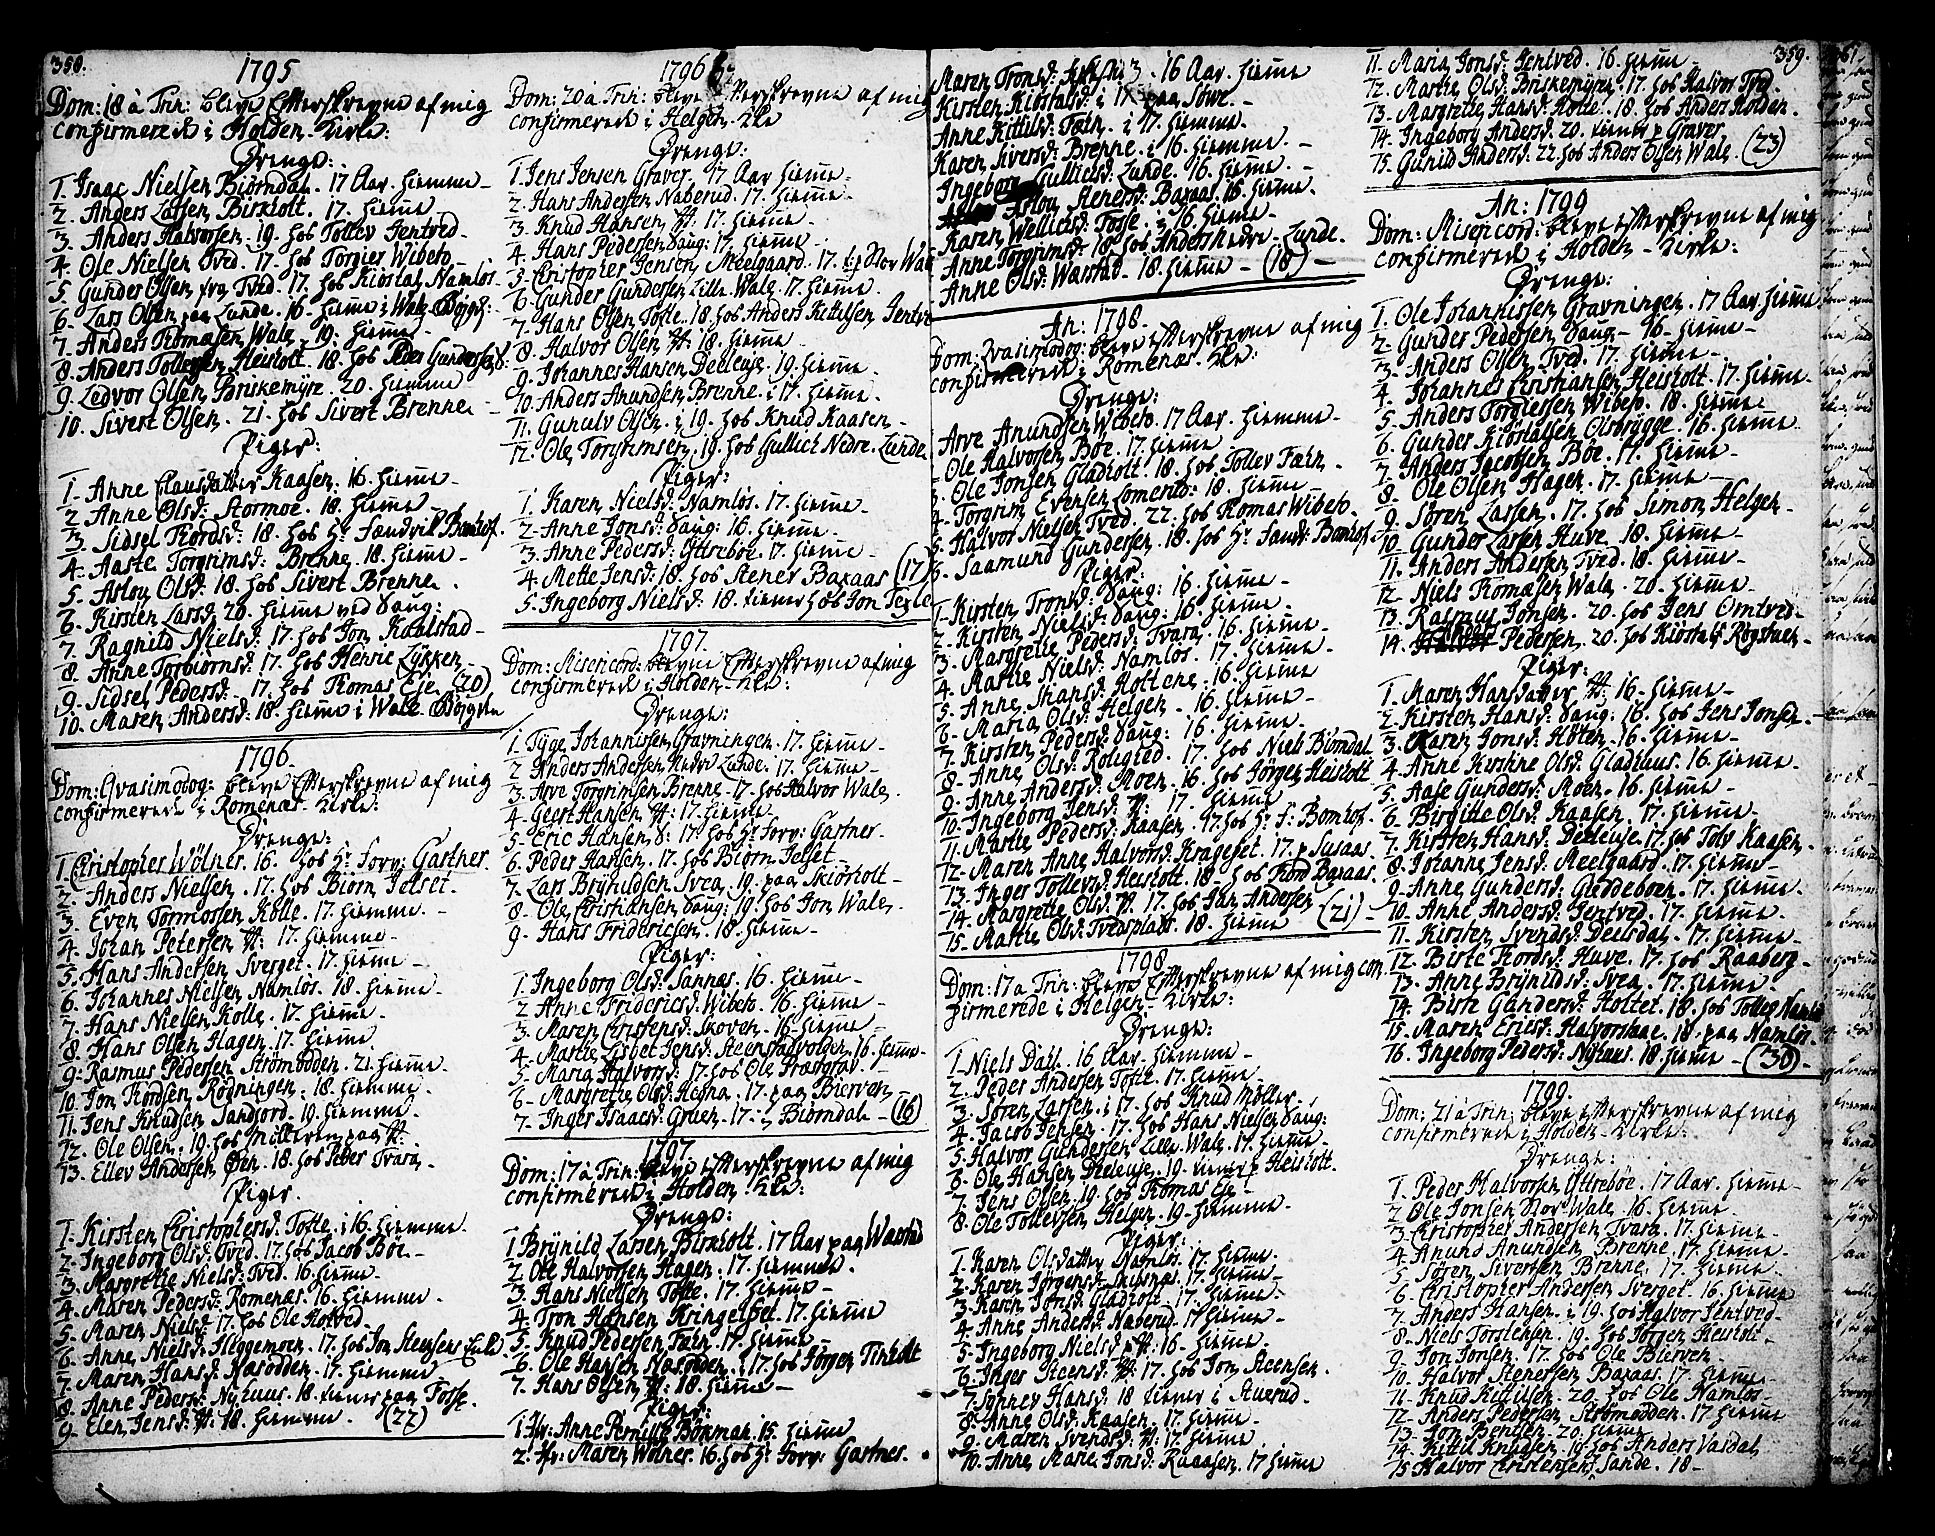 358.
1795
Dom: 18 à Trin: bleve Efterskrevne af mig
confirmerede i Holden Kirke:
Drenge:
1. Isaac Nielsen Biørndal. 17 Aar. hiemme
2. Anders Larsen Birkholt. 17. hieme
3. Anders Halvorsen. 19. hos Tollev Jentved
4. Ole Nielsen Tved. 17. hos Torgier Wibeto
5. Gunder Olsen fra Tved. 17. hos Kiøstal Namløs
6. Lars Olsen paa Lunde. 16. hieme i Wale Bøjgd
7. Anders Thomæsen Wale. 19. hieme
8. Anders Tollevsen Heisholt. 18. hos Peder Gundersen
9. Ledvor Olsen Briskemyre. 20. hiemme
10. Sivert Olsen. 21. hos Sivert Brenne
Piger:
1. Anne Clausdatter Kaasen. 16. hieme
2. Anne Olsd: Stormoe. 18. hieme
3. Sidsel Thordsd: 18. hos Hr. Sandvik Bomhof.
4. Aaste Torgrimsd: Brenne. 18. hieme
5. Aslou Olsd: 18. hos Sivert Brenne
6. Kirsten Larsd. 20. hieme ved Saug:
7. Ragnild Nielsd: 17. hos Jon Kaalstad
8. Anne Torbiørnsd: 17. hos Henric Lykken
9. Sidsel Pedersd: 17. hos Thomas Eje (20)
10. Maren Andersd: 18. hieme i Wale Bøjgden
1796.
Dom: Qvasimodog: bleve Efterskrevne af mig
confirmerede i Romenæs Kirke:
Drenge:
1. Christopher Wølner. 16. hos Hr. Forv: Gartner.
2. Anders Nielsen. 17. hos Biørn Jelset.
3. Even Tormosen Kolle. 17. hiemme.
4. Johan Petersen W: 17. hiemme
5. Hans Andersen Sverget. 17. hieme
6. Johannes Nielsen Namløs. 18. hieme
7. Hans Nielsen Kolle. 17. hieme.
8. Hans Olsen Hagen. 17. hieme
9. Rasmus Pedersen Strømodden. 21. hieme
10. Jon Thordsen Rødningen. 18. hiemme
11. Jens Knudsen Sandjord. 19. hiemme.
12. Ole Olsen. 19. hos Mølleren paa W:
13. Ellev Andersen Øen. 18. hos Peder Tvara.
Piger.
1. Kirsten Christophersd: Tofte. i 16. hiemme.
2. Ingeborg Olsd: Tved. 17. hos Jacob Bøe
3. Margrethe Nielsd: Tved. 16. hieme
4. Maren Pedersd: Romenæs. 16. hiemme
5. Maren Nielsd: 17. hos Ole Hotved.
6. Anne Nielsd: Heggemoen. 17. hos Jon Steensens Enke
7. Maren Hansd: Næsodden. 17. hiemme
8. Anne Pedersd: Nyhuus. 18. tiener paa Tosse.
9. Elen Jensd: W: 18. hiemme. (22)
1796
Dom: 20 à Trin: bleve Efterskrevne af mig
confirmerede i Helgen Kke
Drenge:
1. Jens Jensen Graver. 17 Aar hieme.
2. Hans Andersen Naberud. 17. hieme
3. Knud Hansen W. 17. hieme
4. Hans Pedersen Saug: 17. hieme
5. Christopher Jensen Meelgaard. 17. hos Stor Wale
6. Gunder Gundersen Lille Wale. 17. hieme
7. Hans Olsen Tofte. 18. hos Anders Kittelsen Jentve
8. Halvor Olsen W. 18. hieme
9. Johannes Hansen Deeleuje. 19. hieme
10. Anders Anundsen Brenne. i 17. hieme
11. Gunulv Olsen. i 19. hos Knud Kaasen
12. Ole Torgrimsen. 19. hos Gullich Nedre Lunde
Piger:
1. Karen Nielsd: Namløs. 17. hieme
2. Anne Jonsd: Saug: 16. hieme
3. Anne Pedersd: Ottreboe. 17. hieme
4. Mette Jensd: 18. hos Stener Baraas (17)
5. Ingeborg Nielsd: 18. tiener hos Jon Texle
1797.
Dom: Misericord: bleve Efterskrevne af mig
confirmerede i Holden Kke:
Drenge:
1. Tyge Johannissen Gravningen. 17. hieme
2. Anders Andersen Nedre Lunde. 17. hieme
3. Arve Torgrimsen Brenne. 17. hos Halvor Wale.
4. Geert Hansen W: 17. hieme
5. Eric Hansen S: 17. hos Hr. Forv: Gartner
6. Peder Hansen. 17. hos Biørn Jelset
7. Lars Brynildsen Svea. 19. paa Skiørholt
8. Ole Christiansen Saug: 19. hos Jon Wale.
9. Hans Fridericsen. 18. hieme
Piger:
1. Ingeborg Olsd: Sannæs. 16. hieme
2. Anne Fridericsd: Wibeto. 16. hieme
3. Maren Christensd: Skoven. 16. hieme
4. Marthe Lisbet Jensd: Steenstadvolden. 16. hieme
5. Maria Halvorsd: 17. hos Ole Præsgrav
6. Margrethe Olsd: Hegna. 17. paa Bierven
7. Inger Isaacsd: Gruen. 17. Biørndale (16)
1797.
Dom: 17 à Trin: bleve Efterskrevne af mig
confirmerede i Holden Kke:
Drenge:
1. Brynild Larsen Birkholt. 17 Aar paa Waastad
2. Ole Halvorsen Hagen. 17. hiemme.
3. Hans Nielsen Tofte. 17. hieme
4. Tron Hansen Kringelset. 17. hieme
5. Knud Pedersen Færn. 17. hieme
6. Ole Hansen Næsodden. i 17. hos Jørgen Tinholt
7. Hans Olsen W: 18. hieme
Piger:
1. Jfr: Anne Pernille Bøhmar. 15. hieme
2. Jfr: Maren Wølner. 16. hos Hr. Forv: Gartner.
Maren Tronsd: 16 Aar. hieme
Kirsten Kiøstalsd: i 17. paa Sowe.
Anne Kittilsd: Færn. i 17. hiemme.
Karen Siversd: Brenne. i 16. hiemme.
Ingeborg Gullicsd: Lunde. 16. hieme.
Aslou Stenersd: Baraas. 16. hieme.
Karen Wellicsd: Tosse. i 16. hieme
Anne Torgrimsd: 18. hos Anders Nedre Lunde.
Anne Olsd: Warstad. 18. hieme (18)
An: 1798.
Dom: Qvasimodog: bleve Efterskrevne af mig
confirmerede i Romenæs Kke:
Drenge:
Arve Anundsen Wibeto. 17 Aar. hiemme
Ole Halvorsen Bøe. 17. hieme
3. Ole Jonsen Gladholt. 18. hos Tollev Færn
4. Torgrim Evensen Lomerud. 18. hieme
5. Halvor Nielsen Tved. 22. hos Thomas Wibeto.
6. Saamund Gundersen. 18. hos Hr. Sandv: Bomhof
Piger:
1. Kirsten Tronsd: Saug: 16. hieme
2. Kirsten Nielsd: Saug: 16. hieme
3. Margrethe Pedersd: Tvara. 16. hieme
4. Marthe Nielsd: Namløs. 17. hieme
5. Anne Jhansd: Holtene. 16. hieme
6. Maria Olsd: Helgen. 16. hieme
7. Kirsten Pedersd: Saug: 16. hieme
8. Anne Olsd: Roligsted. 17. hos Niels Biørndal
9. Anne Andersd: Moen. 16. hos Jørgen Heisholt
10. Ingeborg Jensd: W: 17. hieme
11. Marthe Pedersd: Kaasen. 17. hos Hr. S: Bomhof.
12. Maren Anne Halvorsd: Krageset. 17. Susaas
13. Inger Tollevsd: Heisholt. 18. hos Thord Baraas.
14. Margrethe Olsd: W. 17. hos Jan Andersen (21)
15. Marthe Olsd: Tvedsplads. 18. hieme
1798
Dom: 17 à Trin: bleve Efterskrevne af mig con-
firmerede i Helgen Kirke:
Drenge:
1. Niels Dahl. 16 Aar. hiemme
2. Peder Andersen Tofte. 17. hieme
3. Søren Larsen. i 17. hos Knud Møller.
4. Jacob Jensen. 17. hos Hans Nielsen Saug:
5. Halvor Gundersen Lille Wale. 17. hieme
6. Ole Hansen Deeleuje. 19. tiener Heisholt.
7. Jens Olsen. 19. hos Thomas Eje
8. Ole Tollevsen Helgen. 19. hiemme
Piger:
1. Karen Olsdatter Namløs. 17. hieme.
2. Karen Jørgensd: Skiesnæs. 17. hieme
3. Karen Jonsd: Gladholt. 17. hieme
4. Anne Andersd: Naverud. 17 hieme
5. Ingeborg Nielsd: W: 16. hieme
6. Inger Steensd: W: 17. hos Jon Steensen.
7. Sønnev Hansd: 18. tiener i Auerud
8. Anne Olsd: Kaasen. 17. hieme
9. Maren Svendsd: W: 17. hieme
10. Anne Marie Jonsd: Kaaasen. 17 hieme
359.
11. Maria Jonsd: Jentved. 16. hieme
12. Marthe Olsd: Briskemyre. 17. hos Halvor Tved.
13. Margrethe Hansd: Kotte. 18. hos Anders Holden.
14. Ingeborg Andersd. 20. tiener p Graver
15. Gunild Andersd: 22. hos Anders Olsen Wale. (23)
An: 1799
Dom: Misericord: bleve Efterskrevne af mig
confirmerede i Holden Kirke:
Drenge:
1. Ole Johannissen Gravningen. 17 Aar hieme
2. Gunder Pedersen Saug. 16. hieme
3. Anders Olsen Tved. 17. hieme
4. Johannes Christiansen Heisholt. 17. hieme.
5. Anders Torgiersen Wibeto. 18. hieme
6. Gunder Kiøstalsen Olsbrygge. 16. hieme
7. Anders Jacobsen Bøe. 17. hieme
8. Ole Olsen Hagen. 17. hieme
9. Søren Larsen. 17. hos Simon Helgen
10. Gunder Larsen Huve. 18. hieme
11. Anders Andersen Tved. 18. hieme
12. Niels Thomæsen Wale. 20. hieme
13. Rasmus Jonsen. 20. hos Jens Omtved.
14. Pedersen. 20. hos Kiøstal Røgstuen
Piger:
1. Maren Hansdatter W: 16. hieme
2. Kirsten Hansd: Saug: 16. hos Jens Jonsen
3. Karen Jonsd: Holten. 16. hieme
4. Anne Kirstine Olsd: Gladhuus. 16. hieme.
5. Aase Gundersd: Moen. 16. hieme
6. Birgitte Olsd: Kaasen. 17. hieme
7. Kirsten Hansd: Deeleuje. 17. hos Tolv Kaasen.
8. Johanne Jensd: Meelgaard. 17. hieme
9. Anne Gundersd: Geddeboen. 17. hieme
10. Anne Andersd: Jentved. 17. hieme
11. Kirsten Svendsd: Deelsdal. 17. hieme
12. Birte Thordsd: Huve. 17. hos Raaberg
13. Anne Brynildsd: Svea. 17. hieme
14. Birte Gundersd: Holtet. 18. hos Tollev Namløs
15. Maren Ericsd: Halvorshaae. 18. paa Namløs
16. Ingeborg Pedersd: Nyhuus. 18 hieme (30)
1799.
Dom: 21 à Trin: bleve Efterskrevne af mig
confirmerede i Holden Kirke:
Drenge:
1. Peder Halvorsen Ottrebøe. 17 Aar. hieme
2. Ole Jonsen Stor Wale. 16. hieme
3. Christopher Andersen Tvara. 17. hieme
4. Anund Anundsen Brenne. 17. hieme
5. Søren Sivertsen Brenne. 17. hieme
6. Christopher Andersen Sverget. 16. hieme
7. Anders Hansen. i 19. hos Halvor Jentved
8. Niels Torstensen. 19. hos Jørgen Heisholt
9. Jon Jonsen. 17. hos Ole Bierven
10. Halvor Stenersen Baraas. 17. hieme
11. Knud Kittilsen. 20. hos Ole Namløs
12. Anders Pedersen Strømodden. 17. hieme
13. Jon Bentsen. 20. hieme
14. Kittil Knudsen. 19. hos Anders Vasdal
15. Halvor Christensen Sande. 18